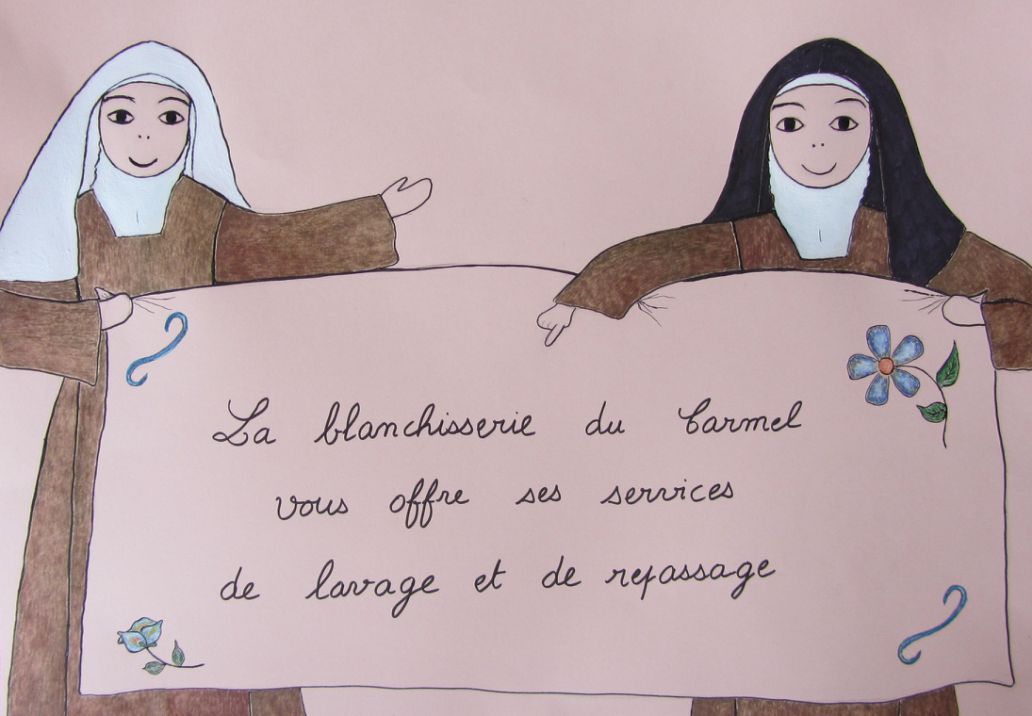 La blanchisserie du Carmel
vous offre ses services
de lavage et de repassage